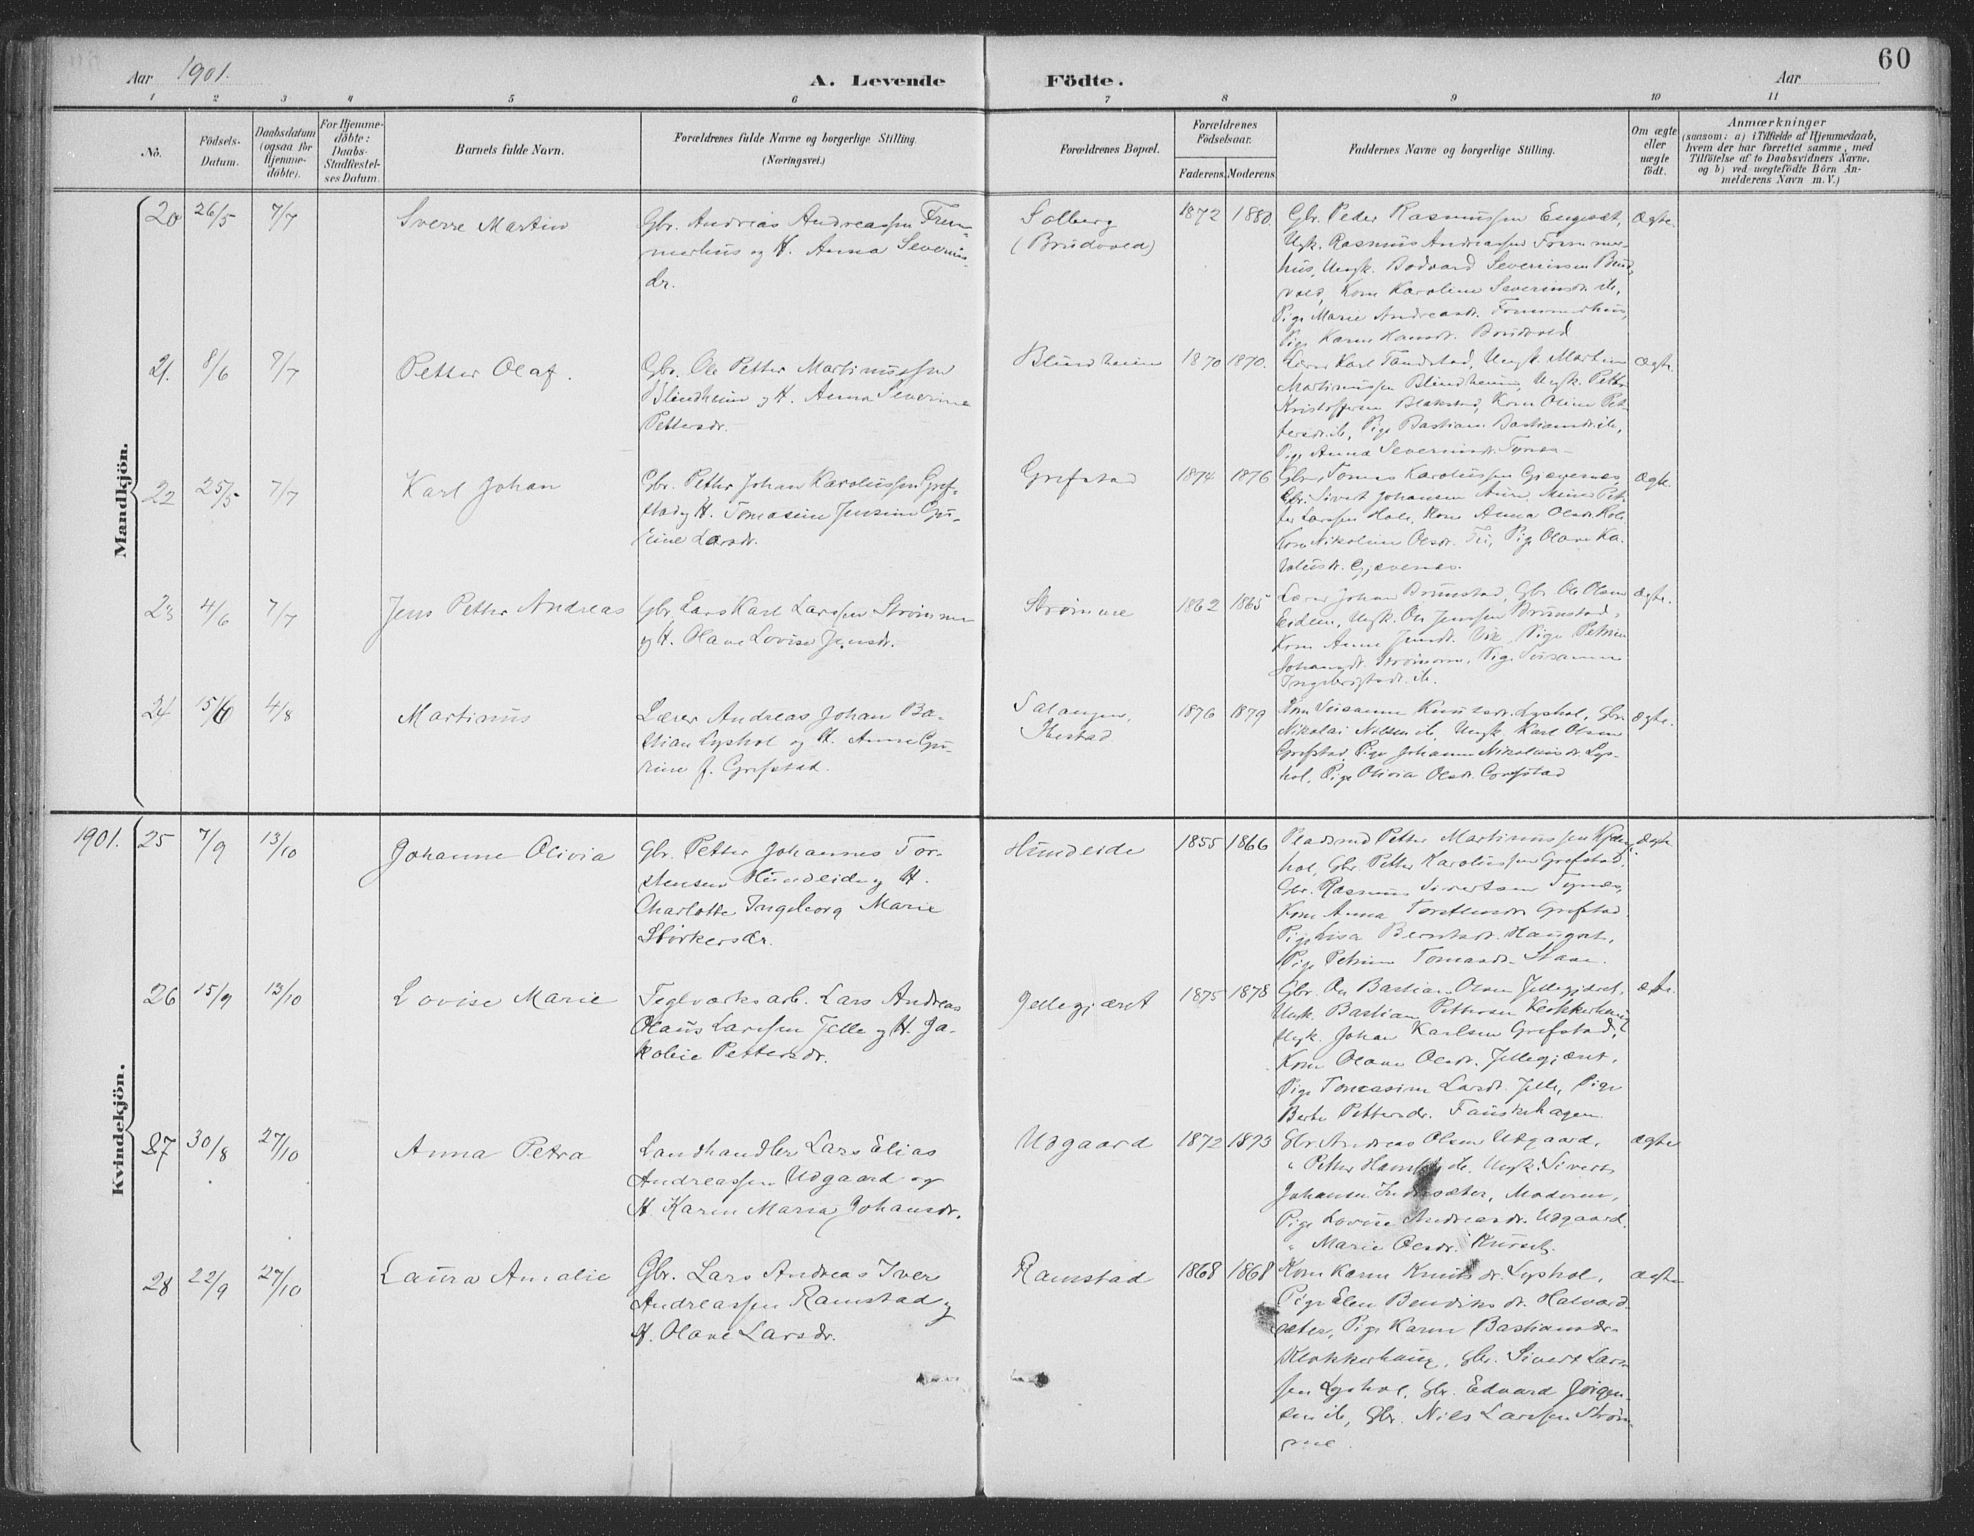 60
Aar 1901.
A. Levende Födte.
Aar
1 2 3 4 5 6 7 8 9 10 11
No.
Födsels-
Datum.
Daabsdatum
(ogsaa för
Hjemme-
döbte).
For Hjemme-
döbte:
Daabs-
Stadfæstel-
ses Datum.
Barnets fulde Navn.
Forældrenes fulde Navne og borgerlige Stilling
(Næringsvei.)
Forældrenes Bopæl.
Forældrenes
Födselsaar.
Faderens. Moderens.
Faddernes Navne og borgerlige Stilling.
Om ægte
eller
uægte
født.
Anmærkninger
(saasom: a) i Tilfælde af Hjemmedaab,
hvem der har forrettet samme, med
Tilföielse af to Daabsvidners Navne,
og b) ved uægtefödte Börn An-
melderens Navn m. V.)
Mandkjön.
20 26/5 7/7
Sverre Martin
Gbr. Andreas Andreassen Frem-
merhus og H. Anna Severins-
dr.
Solberg
(Brudvold)
1872 1880.
Gbr. Peder Rasmussen Engeset,
Ungk. Rasmus Andreassen
hus, Ungk. Severinsen Brud-
vold, Kone Karoline Severinsdr. ib.,
Pige Marie Andreasdr.
Pige Karen Hansdr. Brudvold
Ægte.
21. 8/6 7/7
Petter Olaf.
Gbr. Ole Petter Martinussen
Blindheim og H. Anna Severine
Pettersdr.
Blindheim
1870 1870.
Lærer Karl Tandstad, Ungk. Martin
Martinussen Blindheim, Ungk. Petter
Kristoffersen Blakstad, Kone Oline Pet-
tersdr. ib., Pige Bastiane Bastiansdr. ib.,
Pige Anna Severinsdr. Tynes.
Ægte.
22 25/5 7/7
Karl Johan
Gbr. Petter Johan Karolussen Gref-
stad og H. Tomasine Jensine Gu-
rine Larsdr.
Grefstad
1874 1876
Gbr. Tomas Karolussen Gjævenes,
Gbr. Sivert Johansen Aure, Pet-
ter Larssen Hole, Kone Anna Olsdr. Hole
Kone Nikoline Olsdr. Pige Olave Ka-
rolusdr. Gjævenes.
Ægte.
23 4/6 7/7
Jens Petter Andreas
Gbr. Lars Karl Larssen Strømme
og H. Olave Lovise Jensdr.
Strømme
1862 1865
Lærer Johan Brunstad, Gbr. Ole Olsen
Eidem, Ungk. Ole Jenssen Brunstad,
Kone Anne Jensdr. Vik Pige Petrine
Johansdr. Strømme, Pige Susanne
Ingebrigtsdr. ib.
Ægte.
24 15/6 4/8
Martinus
Lærer Andreas Johan Ba-
stian Lyshol og H. Anne Gu-
rine f. Grefstad.
Salangen,
Ibestad
1876 1879
Kone Susanne Knutsdr. Lyshol, Gbr.
Nikolai Nilsen ib, Ungk. Karl Olsen
Grefstad, Pige Johanne Nikolaisdr. Lys-
hol, Pige Olivia Olsdr. Grefstad
Ægte.
Kvindekjön.
1901. 25 7/9 13/10
Johanne Olivia
Gbr. Petter Johannes Tor-
stensen Hundeide og H.
Charlotte Ingeborg Marie
Størkersdr.
Hundeide
1855 1866
Pladsmd Petter Martinussen
hol, Gbr. Petter Karolussen Grefstad,
Gbr. Rasmus Sivertsen Tynes,
Kone Anna Torstensdr. Grefstad.
Pige Lisa Berntsdr. Hauget,
Pige Petrine Tomasdr. Stave.
ægte
26 15/9 13/10
Lovise Marie
Teglværksarb. Lars Andreas
Olaus Larssen Jelle og H. Ja-
kobie Pettersdr.
Jellegjæret
1875 1878
Gbr. Ole Bastian Olsen Jellegjæret,
Ungk. Bastian Pettersen Klokkerhaug
Ungk. Johan Karlsen Grefstad,
Kone Olave Olsdr. Jellegjæret,
Pige Tomasine Larsdr. Jelle, Pige
Berte Pettersdr. Fauskehagen.
27 30/8 27/10
Anna Petra
Landhandler Lars Elias
Andreassen Udgaard og
H. Karen Maria Johansdr.
Udgaard
1872 1873
Gbr Andreas Olsen Udgaard,
" Petter Hansen ib. Ungk. Sivert
Johansen Indresæter, Moderen,
Pige Lovise Andreasdr. Udgaard.
" Marie Olsdr. Kurset.
ægte
28 22/9 27/10
Laura Amalie
Gbr. Lars Andreas Iver
Andreassen Ramstad og
H. Olave Larsdr.
Ramstad
1868 1868
Kone Karen Knutsdr. Lyshol,
Pige Elen Bendiksdr. Halvard-
sæter, Pige Karen Bastiansdr.
Klokkerhaug, Gbr. Sivert Lars-
sen Lyshol, Gbr. Edvard Jörgen-
sen ib, Gbr. Nils Larssen Strøm-
me.
ægte